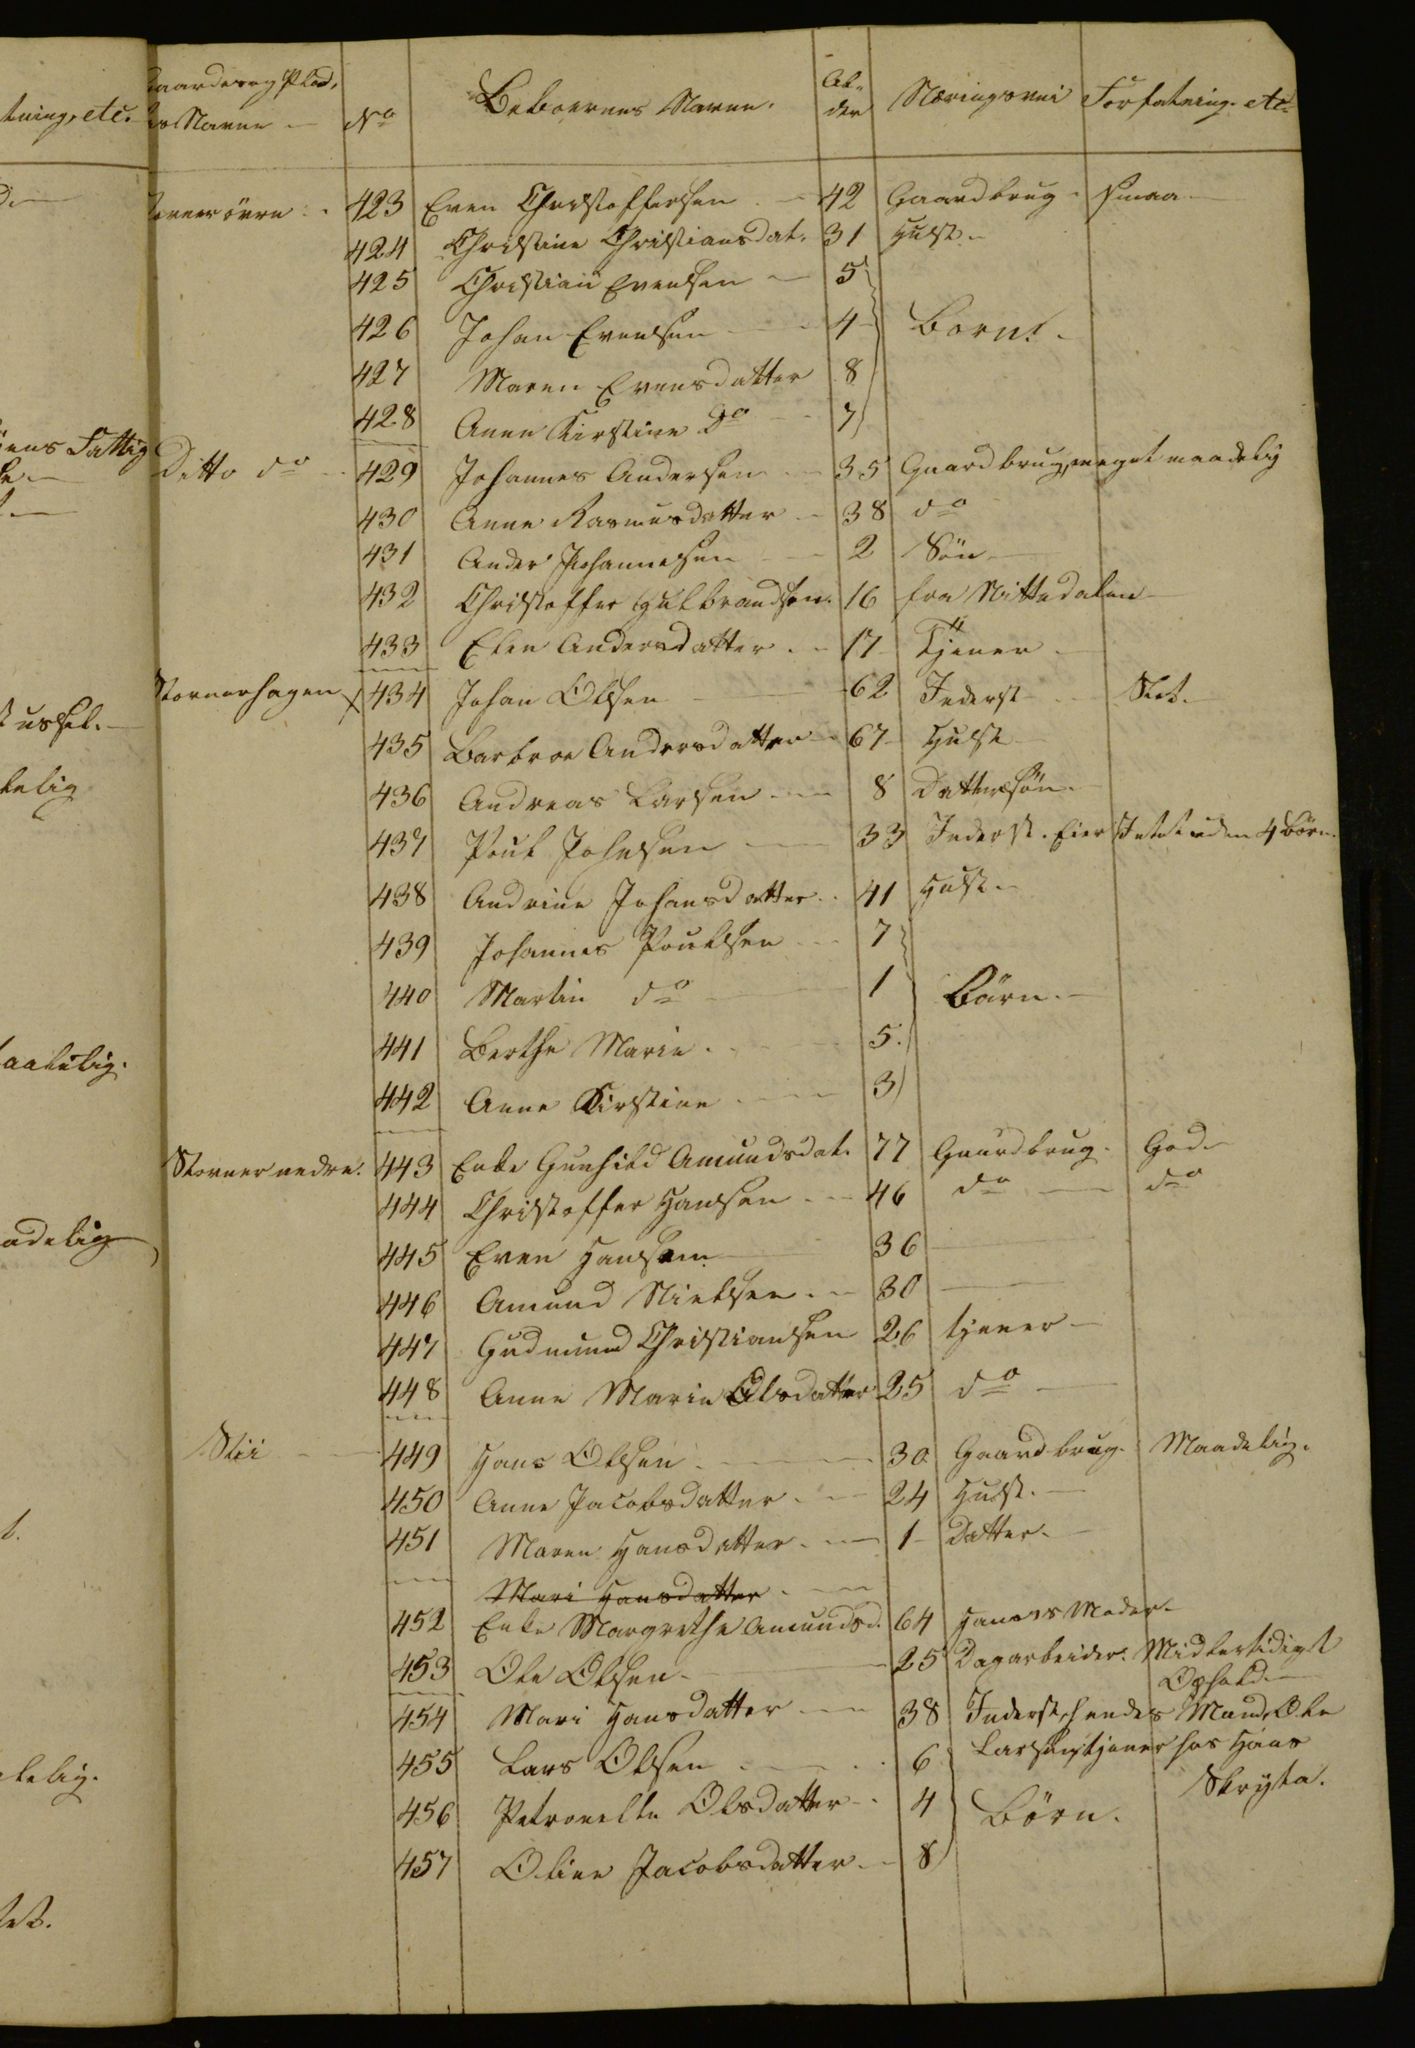 tning, etc.
Gaardes og Plad,
es Navne
No
Beboernes Navne.
Al-
der
Næringsvei
Forfatning etc
423 Even Christoffersen 42 Gaardbrug smaa
424 Christine Christiansdat. 31 Hust.
425 Christian Evensen 5
426 Johan Evensen 4 Børn.
427 Maren Evensdatter 8
428 Anne Kirstine Do 7
Ditto do 429 Johannes Andersen 35 Gaardbrug, meget maadelig
430 Anne Rasmusdatter 38 do
431 Ander Johannesen 2 Søn
432 Christoffer Gulbrandsen. 16 fra Nittedalen
433 Elen Andersdatter 17 Tjener
Stovnerhagen x 434 Johan Olsen 62 Inderst Slet.
435 Barbroe Andersdatter 67 Hust
436 Andreas Larsen 8 Dattersøn.
437 Poul Johnsen 33 Inderst. Eier Intet uden 4 Børn.
438 Andrine Johansdatter 41 Hust.
439 Johannes Poulsen 7
440 Martin do 1 Børn.
441 Berthe Marie 5.
442 Anne Kirstine 3
Stovner nedre. 443 Enke Gunhild Amundsdat. 77 Gaardbrug. God
444 Christoffer Hansen 46 do do
445 Even Hansen 36
446 Amund Nielsen 30
447 Gudmund Christiansen 26 tjener
448 Anne Marie Olsdatter 25 do
Stii 449 Hans Olsen 30 Gaardbrug. Maadelig.
450 Anne Jacobsdatter 24 Hust.
451 Maren Hansdatter 1 Datter.
Mari Hansdatter
452 Enke Margrethe Amundsd. 64 Hanses Moder.
453 Ole Olsen 25 Dagarbeider. Midlertidigt
Ophold
454 Mari Hansdatter 38 Inderst, hendes Mand Ole
455 Lars Olsen 6 Larsen, tjener hos Hans
Skryta.
456 Petronelle Olsdatter 4 Børn.
457 Oline Jacobsdatter 8